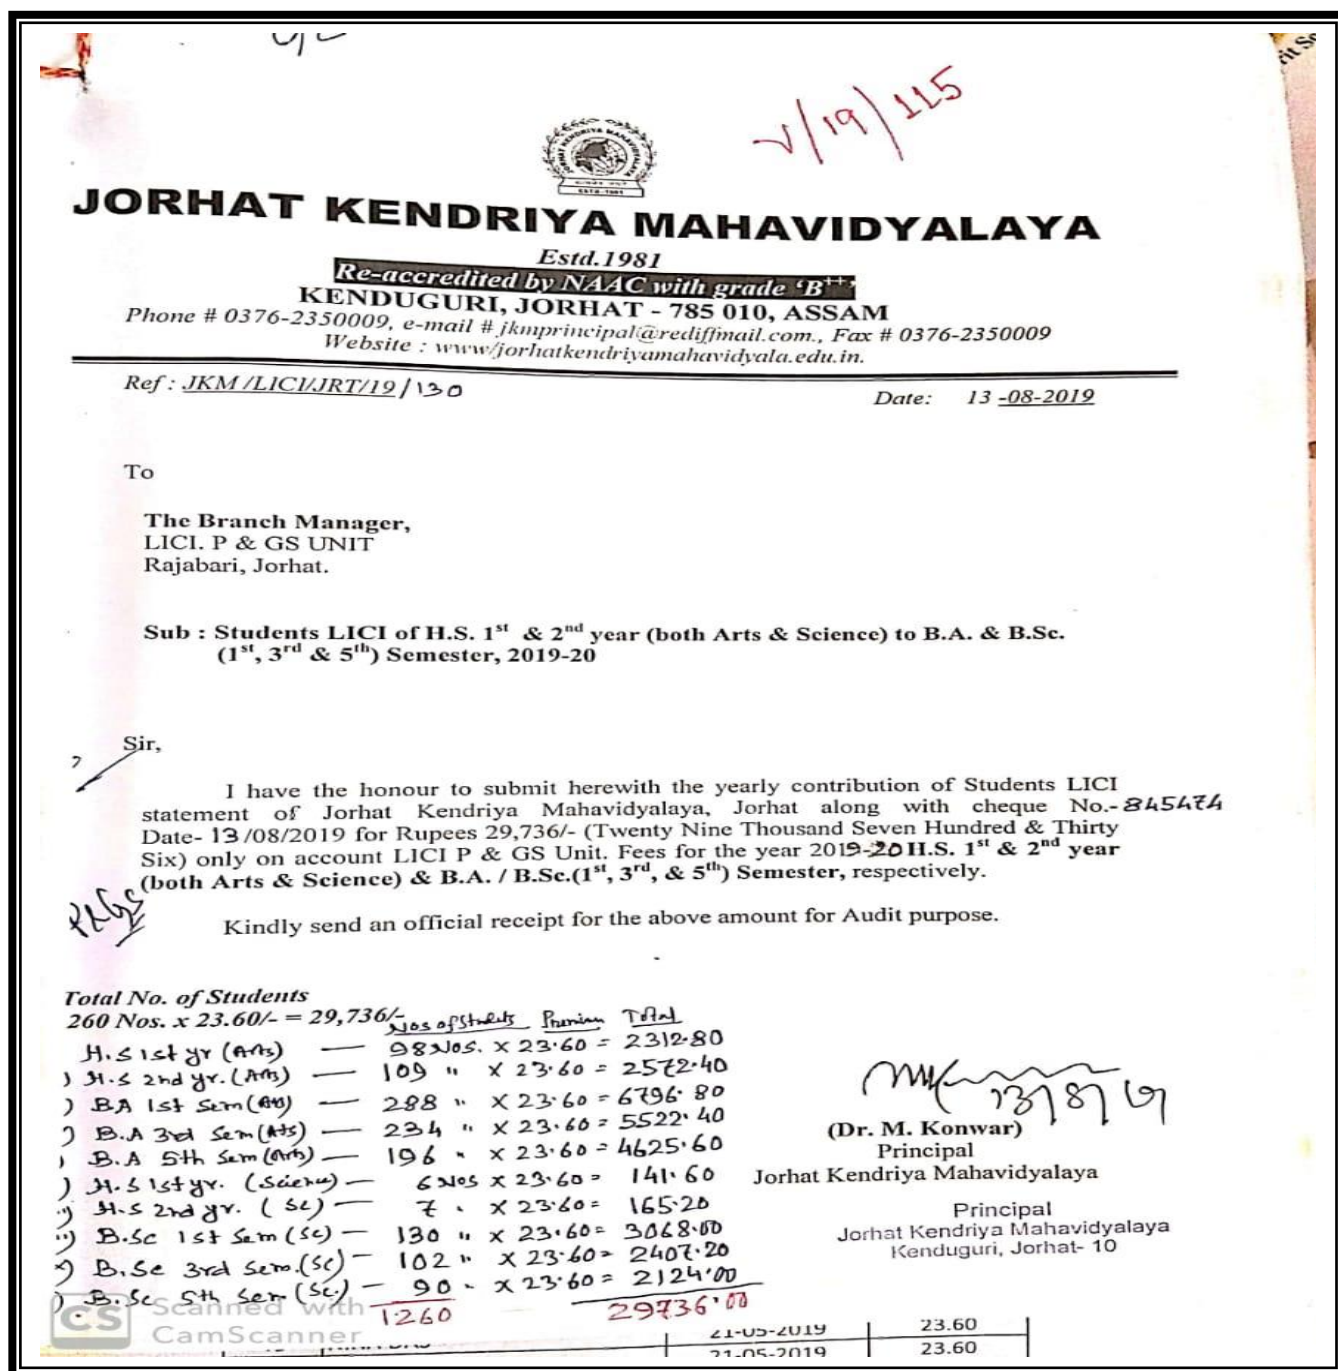 V/19/115
JORHAT KENDRIYA MAHAVIDYALAYA
Estd.1981
Re-accredited by NAAC with grade 'B++'
KENDUGURI, JORHAT - 785 010, ASSAM
Phone # 0376-2350009, e-mail # jkmprincipal@rediffmail.com., Fax # 0376-2350009
Website : www/jorhatkendriyamahavidyala.edu.in.
Ref : JKM /LICI/JRT/19/130
Date: 13 -08-2019
To
The Branch Manager,
LICI. P & GS UNIT
Rajabari, Jorhat.
Sub : Students LICI of H.S. 1st & 2nd year (both Arts & Science) to B.A. & B.Sc.
(1st, 3rd & 5th) Semester, 2019-20
Sir,
I have the honour to submit herewith the yearly contribution of Students LICI
statement of Jorhat Kendriya Mahavidyalaya, Jorhat along with cheque No.- 845474
Date- 13/08/2019 for Rupees 29,736/- (Twenty Nine Thousand Seven Hundred & Thirty
Six) only on account LICI P & GS Unit. Fees for the year 2019-20 H.S. 1st & 2nd year
(both Arts & Science) & B.A. / B.Sc.(1st, 3rd, & 5th) Semester, respectively.
P&GS
Kindly send an official receipt for the above amount for Audit purpose.
Total No. of Students
260 Nos. x 23.60/- = 29,736/-
Nos of Students Premium Total
H.S 1st yr (Arts) — 98 Nos. X 23.60 = 2312.80
) H.S 2nd yr. (Arts) — 109 " X 23.60 = 2572.40
) BA 1st Sem (Arts) — 288 " X 23.60 = 6796.80
) B.A 3rd Sem (Arts) — 234 " X 23.60 = 5522.40
) B.A 5th Sem (Arts) — 196 " X 23.60 = 4625.60
) H.S 1st yr. (Science) — 6 Nos X 23.60 = 141.60
) H.S 2nd yr. (Sc) — 7 " X 23.60 = 165.20
) B.Sc 1st Sem (Sc) — 130 " X 23.60 = 3068.00
) B.Sc 3rd Sem. (Sc) — 102 " X 23.60 = 2407.20
) B.Sc 5th Sem (Sc.) — 90 " X 23.60 = 2124.00
1260 29736.00
13/8/19
(Dr. M. Konwar)
Principal
Jorhat Kendriya Mahavidyalaya
Principal
Jorhat Kendriya Mahavidyalaya
Kenduguri, Jorhat- 10
CS Scanned with
CamScanner
21-05-2019 23.60
21-05-2019 23.60